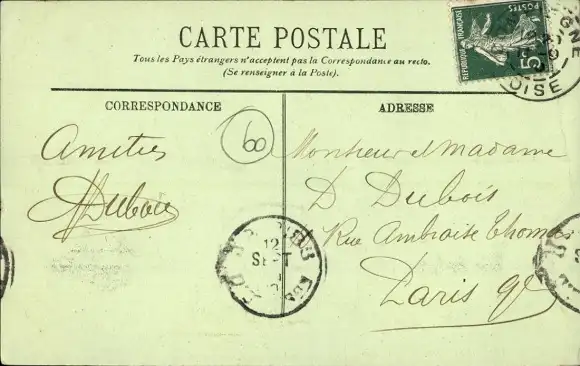 CARTE POSTALE
Tous les Pays étrangers n'acceptent pas la Correspondance au recto.
(Se renseigner à la Poste).
CORRESPONDANCE
ADRESSE
60
Amitiés
Dubois
Monsieur et Madame
D Dubois
Rue Ambroise Thomas
Paris 9e
RÉPUBLIQUE FRANÇAISE
5c
OISE
12
SEPT